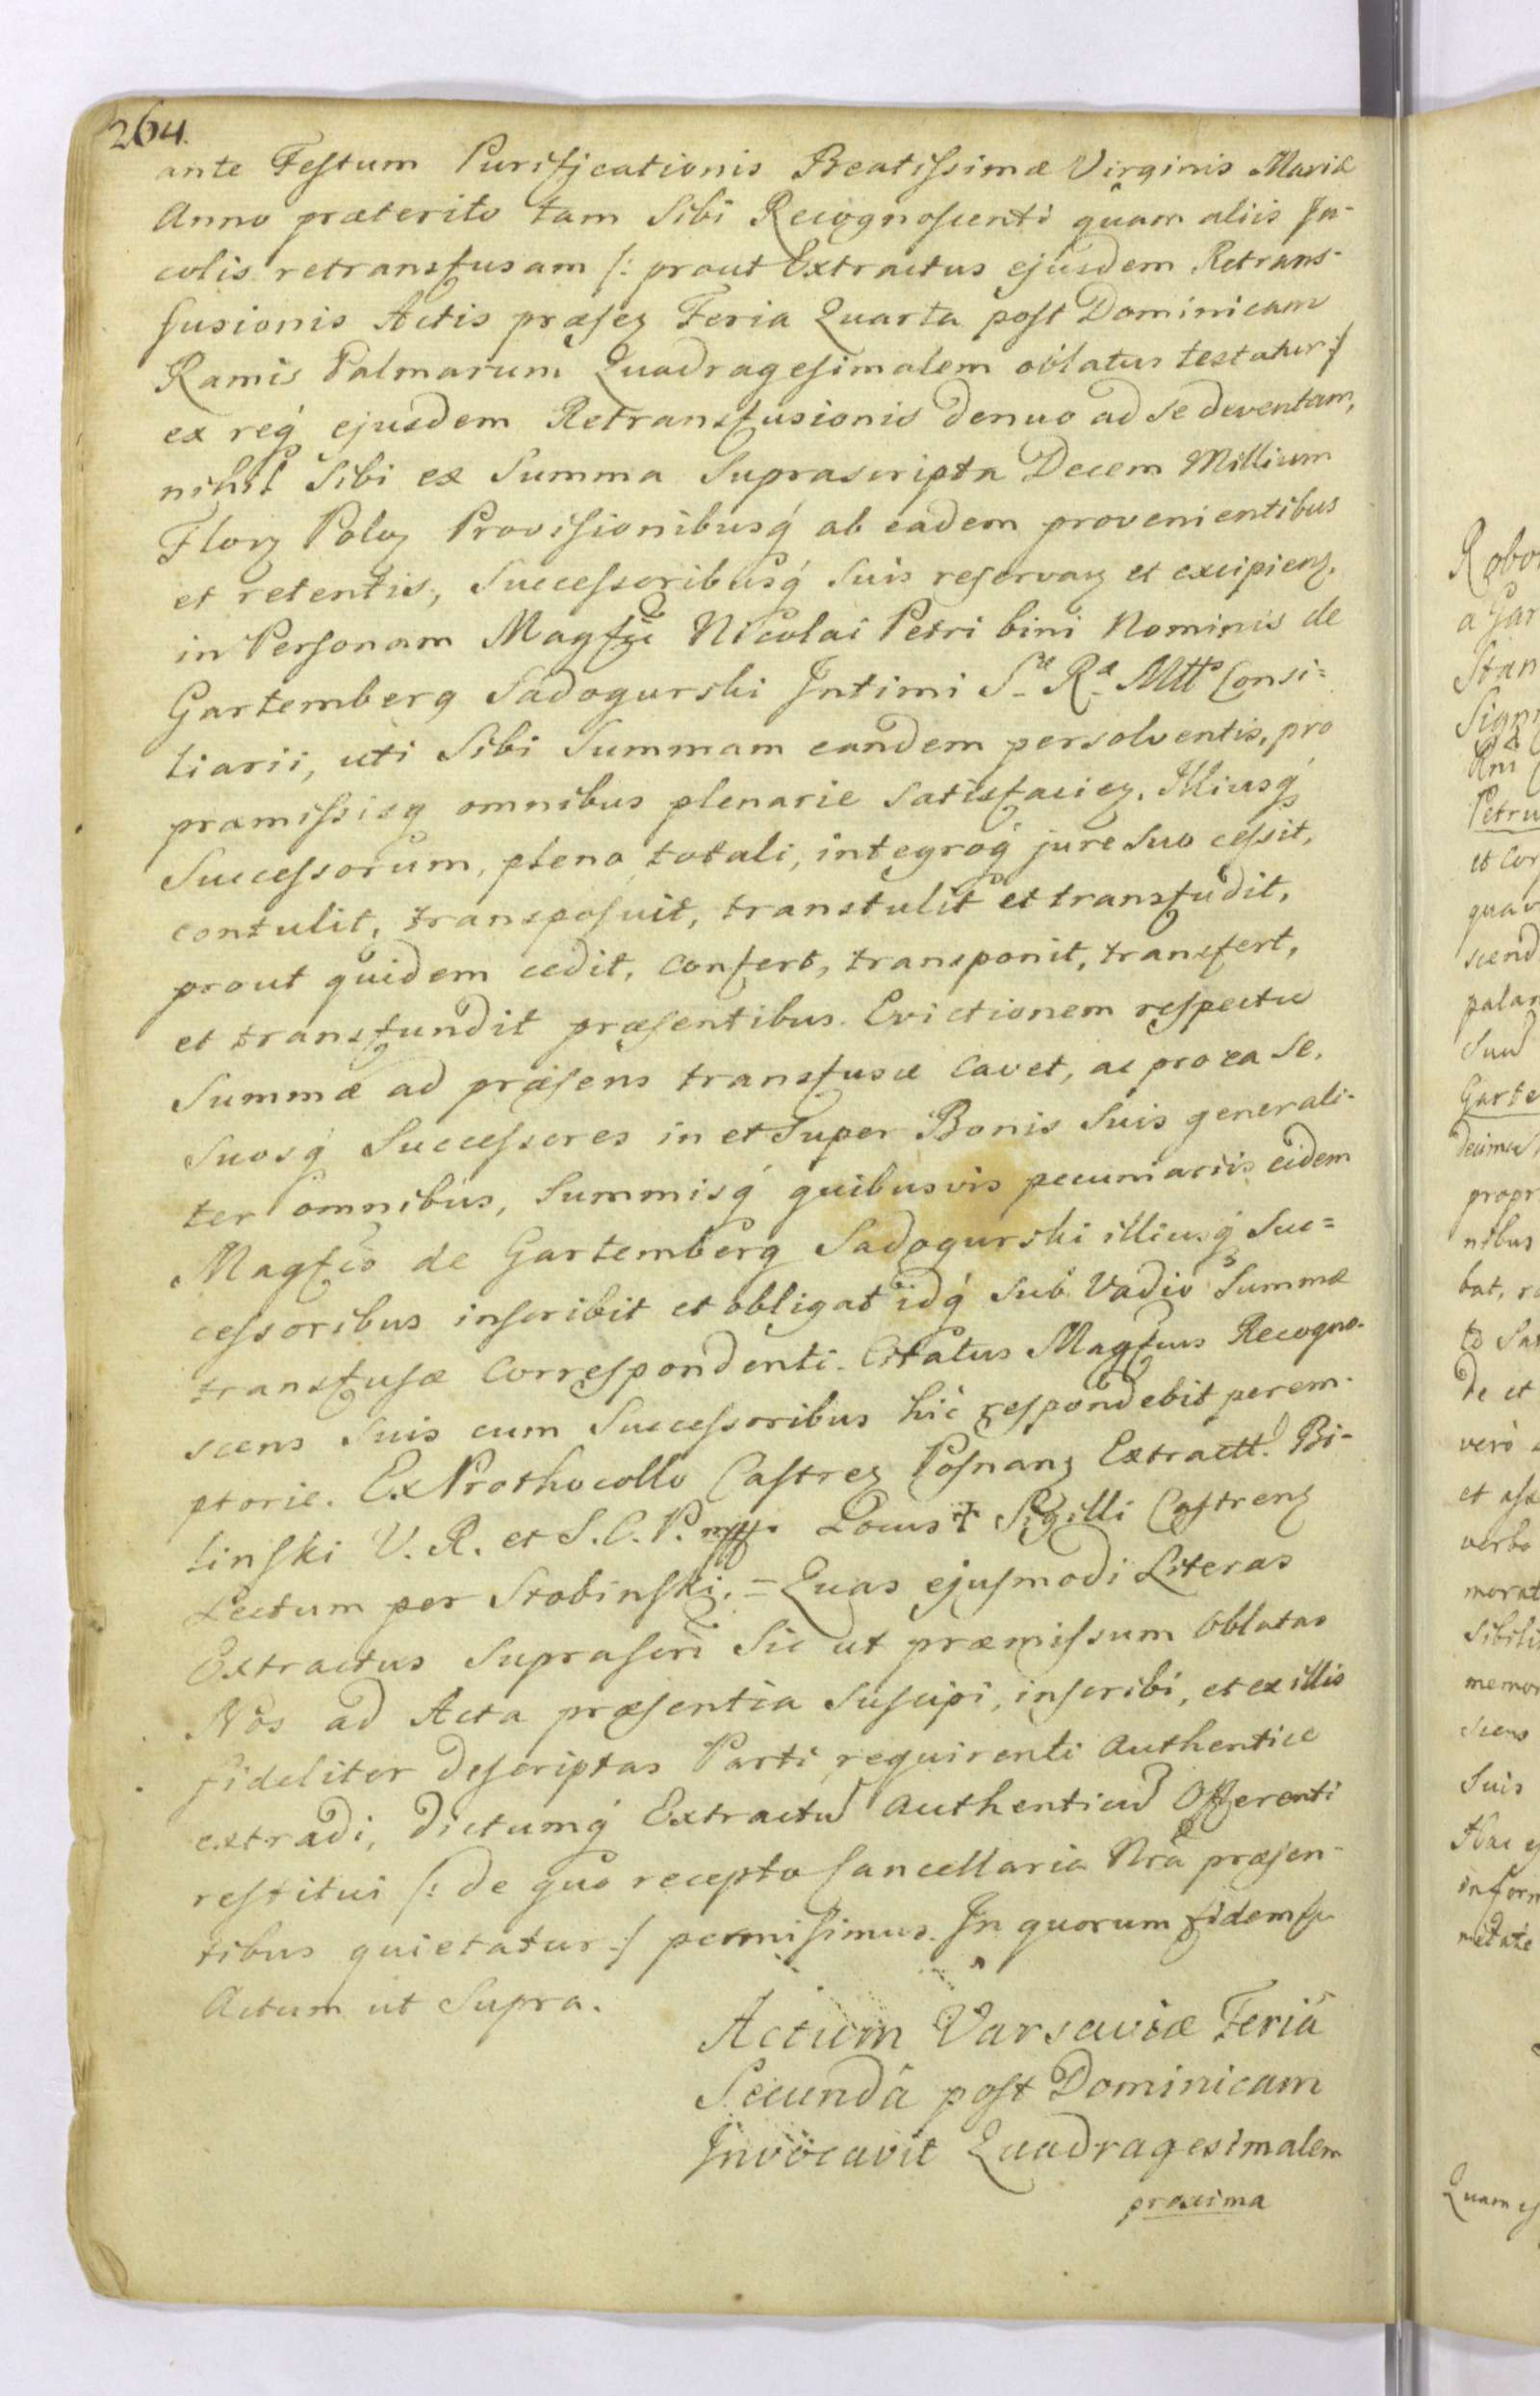 264.
ante Festum Purificationis Beatissimæ Virginis Mariæ
Anno præterito tam Sibi Recognoscenti quam aliis In-
colis retransfusam /: prout Extractus ejusdem Retrans-
fusionis Actis præsez Feria Quarta post Dominicam
Ramis Palmarum Quadragesimalem oblatus testatur :/
ex reǵ ejusdem Retransfusionis denuo ad se deventam,
nihil Sibi ex Summa Suprascripta Decem Millium
Florz Poloz Provisionibusǵ ab eadem provenientibus
et retentis, Successoribusǵ Suis reservanz et excipienz,
in Personam Magfci Nicolai Petri bini Nominis de
Gartemberg Sadogurski Intimi Sæ Ræ Mtts Consi=
liarii, uti Sibi Summam eandem persolventis, pro
præmissisq omnibus plenarie Satisfaciez, Illiusǵ
Successorum, pleno totali, integroǵ jure Suo cessit,
contulit, transposuit, transtulit et transfudit,
prout quidem cedit, confert, transponit, transfert,
et transfundit præsentibus. Evictionem respectu
Summæ ad præsens transfusæ Cavet, ac pro ea Se,
Suosǵ Successores in et Super Bonis Suis generali-
ter omnibus, Summisǵ quibusvis pecuniariis eidem
Magfco de Gartemberg Sadogurski illiusǵ Suc=
cessoribus inscribit et obligat idǵ Sub Vadio Summæ
transfusæ Correspondenti. Citatus Magfcus Recogno-
scens Suis cum Successoribus hic respondebit perem-
ptorie. Ex Prothocollo Castrez Posnanz Extractt. Bi-
linski V. R. et S. C. P. mpp. Locus ✝ Sigilli Castrenz
Lectum per Stobinski. = Quas ejusmodi Literas
Extractus Suprascri Sic ut præmissum Oblatas
Nos ad Acta præsentia Suscipi, inscribi, et ex illis
fideliter descriptas Parti requirenti Authentice
extradi, dictumǵ Extractu Authenticu Offerenti
restitui /: de quo recepto Cancellaria Nra præsen-
tibus quietatur :/ permisimus. In quorum fidem
Actum ut Supra.
Actum Varsaviæ Feriâ
Secundâ post Dominicam
Invocavit Quadragesimalem
proxima
Robo
a Gar
Stan
Petru
et Cor
quav
scend
palan
Suu
Garte
propr
nibus
bat, ro
to Sa
de et
verò
et
verbo
morat
Sibili
memor
scens
Suis
Hac
inform
Quam